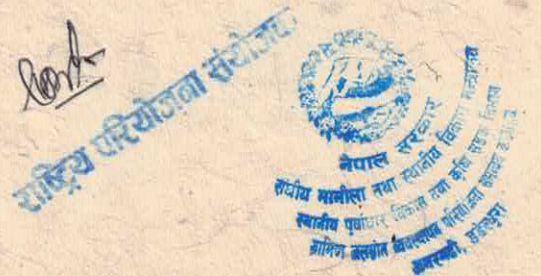 राष्ट्रिय परियोजना संयोजक
नेपाल सरकार
संघीय मामीला तथा स्थानीय विकास मन्त्रालय
स्थानीय पूर्वाधार विकास तथा कृषि सडक विभाग
ग्रामिण जलस्रोत व्यवस्थापन परियोजना